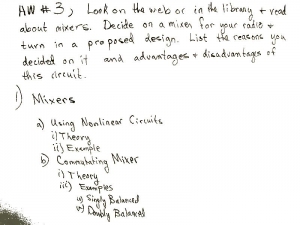 HW #3, Look on the web or in the library + read
about mixers. Decide on a mixer for your radio +
turn in a proposed design. List the reasons you
decided on it and advantages + disadvantages of
this circuit.
1) Mixers
a) Using Nonlinear Circuits
i) Theory
ii) Example
b) Commutating Mixer
i) Theory
iii) Examples
u) Singly Balanced
v) Doubly Balanced